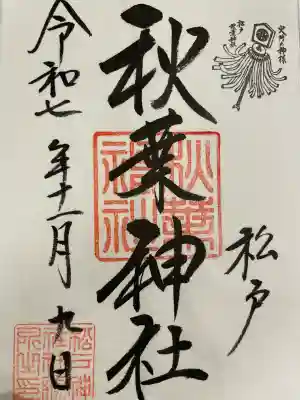 火伏の神様
松戸
秋葉神社
松戸
秋葉神社
秋葉神社
令和七年十一月九日